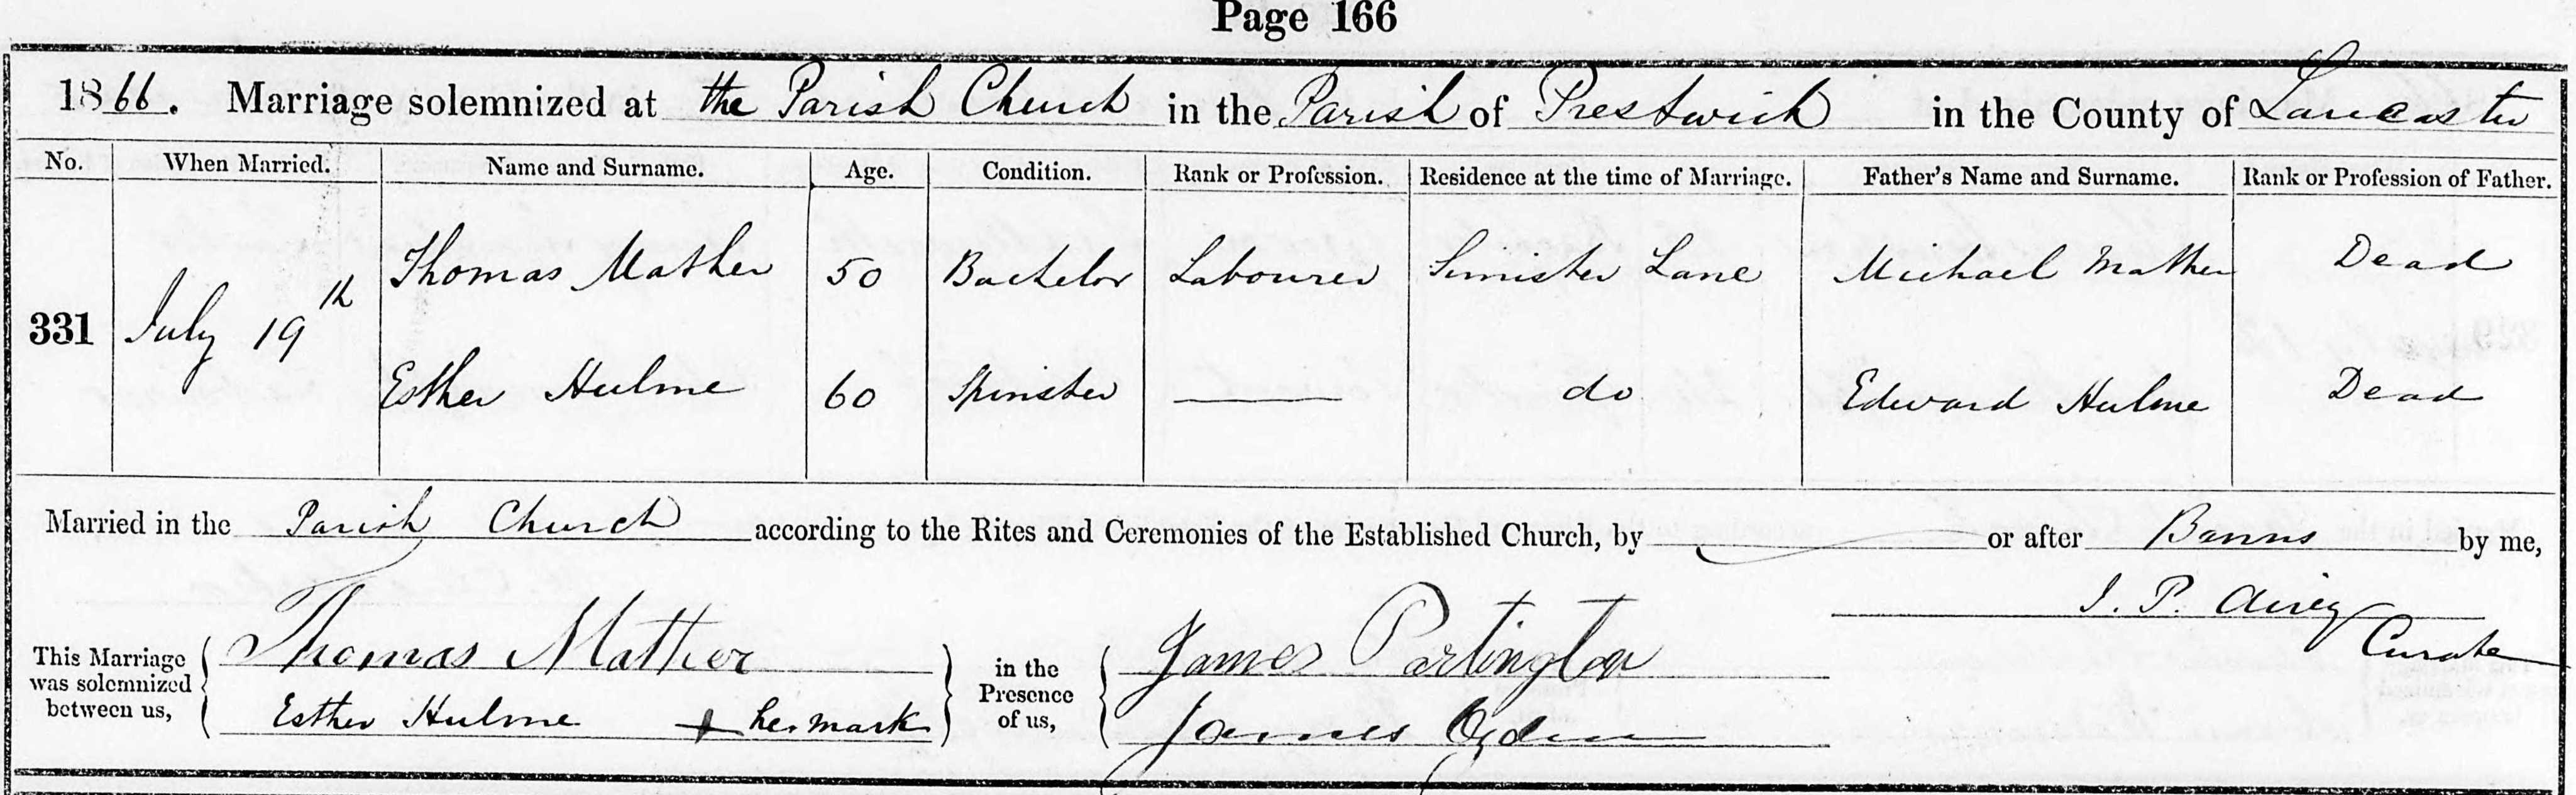 Page 166
1866. Marriage solemnized at the Parish Church in the Parish of Prestwich in the County of Lancaster
No. When Married. Name and Surname. Age. Condition. Rank or Profession. Residence at the time of Marriage. Father's Name and Surname. Rank or Profession of Father.
Thomas Mather 50 Bachelor Labourer Simister Lane Michael Mather Dead
331 July 19th
Esther Hulme 60 Spinster —— do Edward Hulme Dead
Married in the Parish Church according to the Rites and Ceremonies of the Established Church, by —— or after Banns by me,
J. P. Airey
Curate
This Marriage was solemnized between us, { Thomas Mather
Esther Hulme + her mark }
in the Presence of us, { James Partington
James Ogden